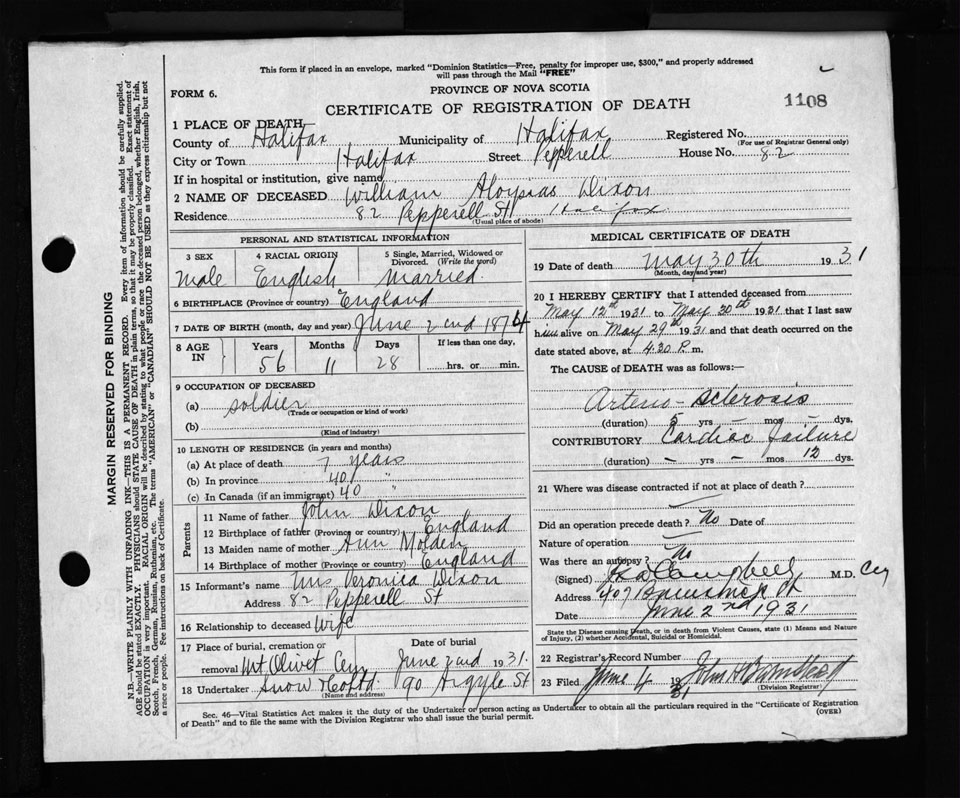 This form if placed in an envelope, marked "Dominion Statistics—Free, penalty for improper use, $300," and properly addressed
will pass through the Mail "FREE"
FORM 6.
PROVINCE OF NOVA SCOTIA
CERTIFICATE OF REGISTRATION OF DEATH
1108
1 PLACE OF DEATH
County of Halifax Municipality of Halifax Registered No.
(For use of Registrar General only)
City or Town Halifax Street Pepperell House No. 82
If in hospital or institution, give name
2 NAME OF DECEASED William Aloysias Dixon
Residence 82 Pepperell St Halifax
(Usual place of abode)
PERSONAL AND STATISTICAL INFORMATION
3 SEX Male
4 RACIAL ORIGIN English
5 Single, Married, Widowed or Divorced. (Write the word) Married.
6 BIRTHPLACE (Province or country) England
7 DATE OF BIRTH (month, day and year) June 2nd 1874
8 AGE IN Years 56 Months 11 Days 28 If less than one day, hrs. or min.
9 OCCUPATION OF DECEASED
(a) Soldier
(Trade or occupation or kind of work)
(b)
(Kind of industry)
10 LENGTH OF RESIDENCE (in years and months)
(a) At place of death 7 years
(b) In province 40 "
(c) In Canada (if an immigrant) 40 "
Parents
11 Name of father John Dixon
12 Birthplace of father (Province or country) England
13 Maiden name of mother Ann Molden
14 Birthplace of mother (Province or country) England
15 Informant's name Mrs Veronica Dixon
Address 82 Pepperell St
16 Relationship to deceased Wife
17 Place of burial, cremation or removal Mt Olivet Cey Date of burial June 2nd 1931.
18 Undertaker Snow & Co Ltd 90 Argyle St
(Name and address)
MEDICAL CERTIFICATE OF DEATH
19 Date of death May 30th 1931
(Month, day and year)
20 I HEREBY CERTIFY that I attended deceased from
May 12th 1931 to May 30th 1931 that I last saw
him alive on May 29th 1931 and that death occurred on the
date stated above, at 4.30 P. m.
The CAUSE of DEATH was as follows:—
Arterio-Sclerosis
(duration) 5 yrs – mos – dys.
CONTRIBUTORY Cardiac failure
(duration) – yrs – mos 12 dys.
21 Where was disease contracted if not at place of death?
Did an operation precede death? No Date of
Nature of operation
Was there an autopsy? No
(Signed) Campbell M.D.
Address 407
Date June 2nd 1931
State the Disease causing Death, or in death from Violent Causes, state (1) Means and Nature
of Injury, (2) whether Accidental, Suicidal or Homicidal.
22 Registrar's Record Number
23 Filed June 4 1931 John H
(Division Registrar)
Sec. 46—Vital Statistics Act makes it the duty of the Undertaker or person acting as Undertaker to obtain all the particulars required in the "Certificate of Registration
of Death" and to file the same with the Division Registrar who shall issue the burial permit.
(OVER)
MARGIN RESERVED FOR BINDING
N.B. WRITE PLAINLY WITH UNFADING INK—THIS IS A PERMANENT RECORD. Every item of information should be carefully supplied.
AGE should be stated EXACTLY. PHYSICIANS should STATE CAUSE OF DEATH in plain terms, so that it may be properly classified. Exact statement of
OCCUPATION is very important. RACIAL ORIGIN will be described by stating to what people or race the deceased person belonged, whether English, Irish,
Scotch, French, German, Russian, Ruthenian, etc. The terms "AMERICAN" or "CANADIAN" SHOULD NOT BE USED as they express citizenship but not
a race or people. See instructions on back of Certificate.